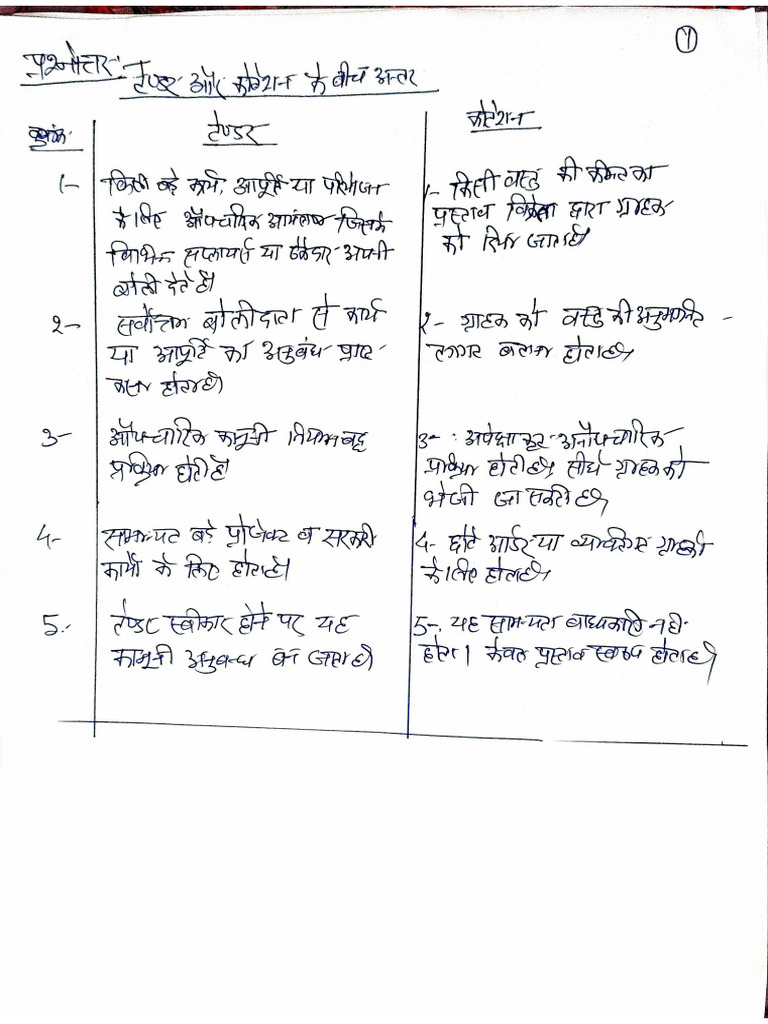 (1)
प्रश्नोत्तर:-
टेण्डर और कोटेशन के बीच अन्तर
क्रमांक टेण्डर कोटेशन
1- किसी बड़े कार्य, आपूर्ति या परियोजना
के लिए औपचारिक आमंत्रण जिसके
विभिन्न सप्लायर्स या ठेकेदार अपनी
बोली देते हैं।
1- किसी वस्तु की कीमत का
प्रस्ताव विक्रेता द्वारा ग्राहक
को दिया जाता है।
2- सर्वोत्तम बोलीदाता से कार्य
या आपूर्ति का अनुबंध प्राप्त
करना होता है।
2- ग्राहक को वस्तु की अनुमानित -
लागत बताना होता है।
3- औपचारिक कानूनी नियमबद्ध
प्रक्रिया होती है।
3- अपेक्षाकृत अनौपचारिक
प्रक्रिया होती है। सीधे ग्राहक को
भेजी जा सकती है।
4- सामान्यत बड़े प्रोजेक्ट व सरकारी
कार्यों के लिए होता है।
4- छोटे आर्डर या व्यक्तिगत ग्राहकों
के लिए होता है।
5- टेण्डर स्वीकार होने पर यह
कानूनी अनुबन्ध बन जाता है।
5- यह सामान्यता बाध्यकारी नही
होता। केवल प्रस्ताव स्वरूप होता है।